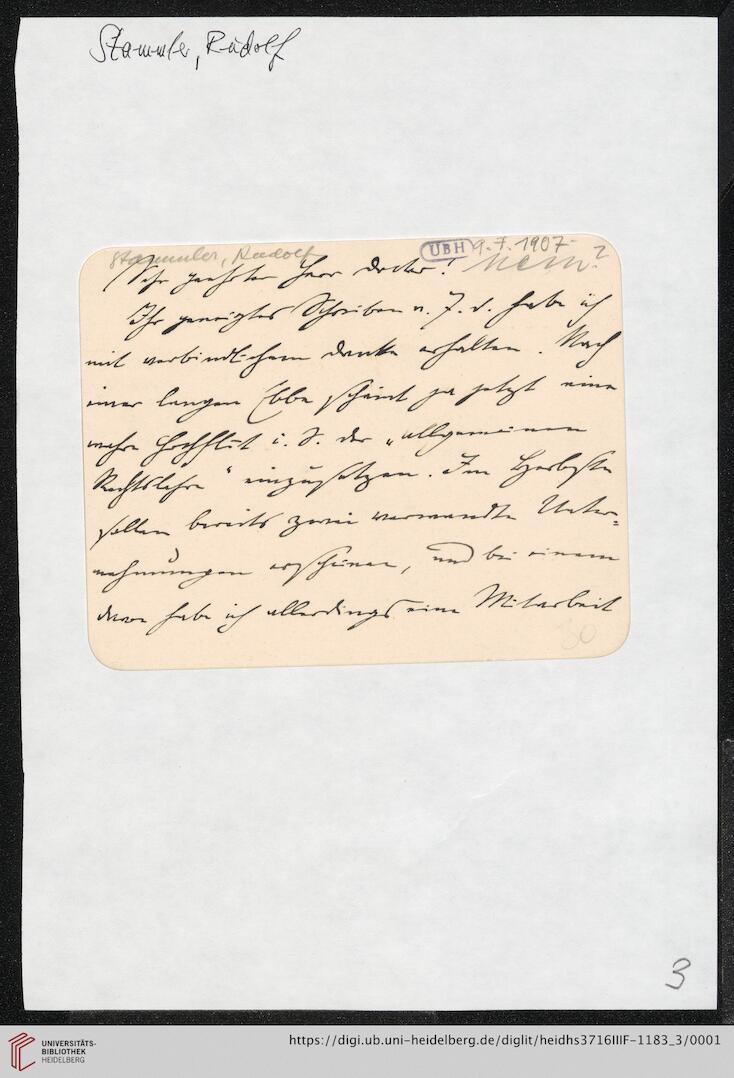 Stammler, Rudolf
Stammler, Rudolf
UBH
9.7.1907
nein?
Sehr geehrter Herr Doctor!
Ihr geneigtes Schreiben v. 7. d. habe ich
mit verbindlichem Danke erhalten. Nach
einer langen Ebbe scheint ja jetzt eine
wahre Hochflut i. S. der „allgemeinen
Rechtslehre" einzusetzen. Im Herbste
sollen bereits zwei verwandte Unter-
nehmungen erscheinen, und bei einem
davon habe ich allerdings eine Mitarbeit
30
3
UNIVERSITÄTS-
BIBLIOTHEK
HEIDELBERG
https://digi.ub.uni-heidelberg.de/diglit/heidhs3716IIIF-1183_3/0001